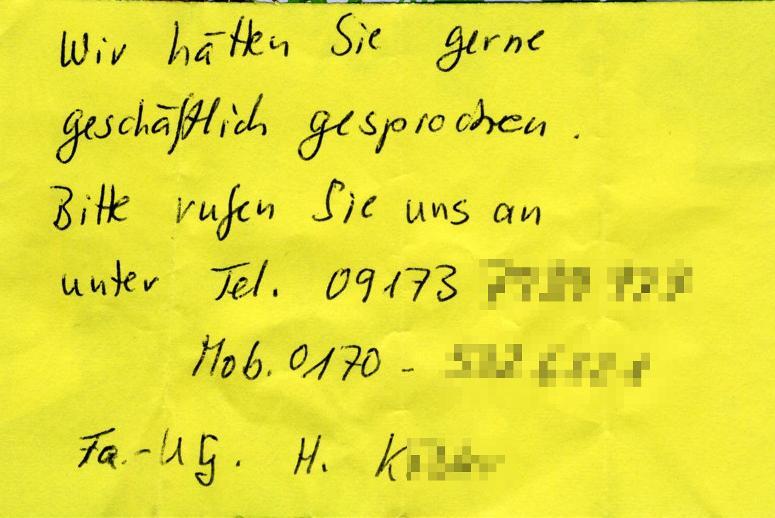 Wir hätten Sie gerne
geschäftlich gesprochen.
Bitte rufen Sie uns an
unter Tel. 09173
Mob. 0170 -
Fa.-UG. H.